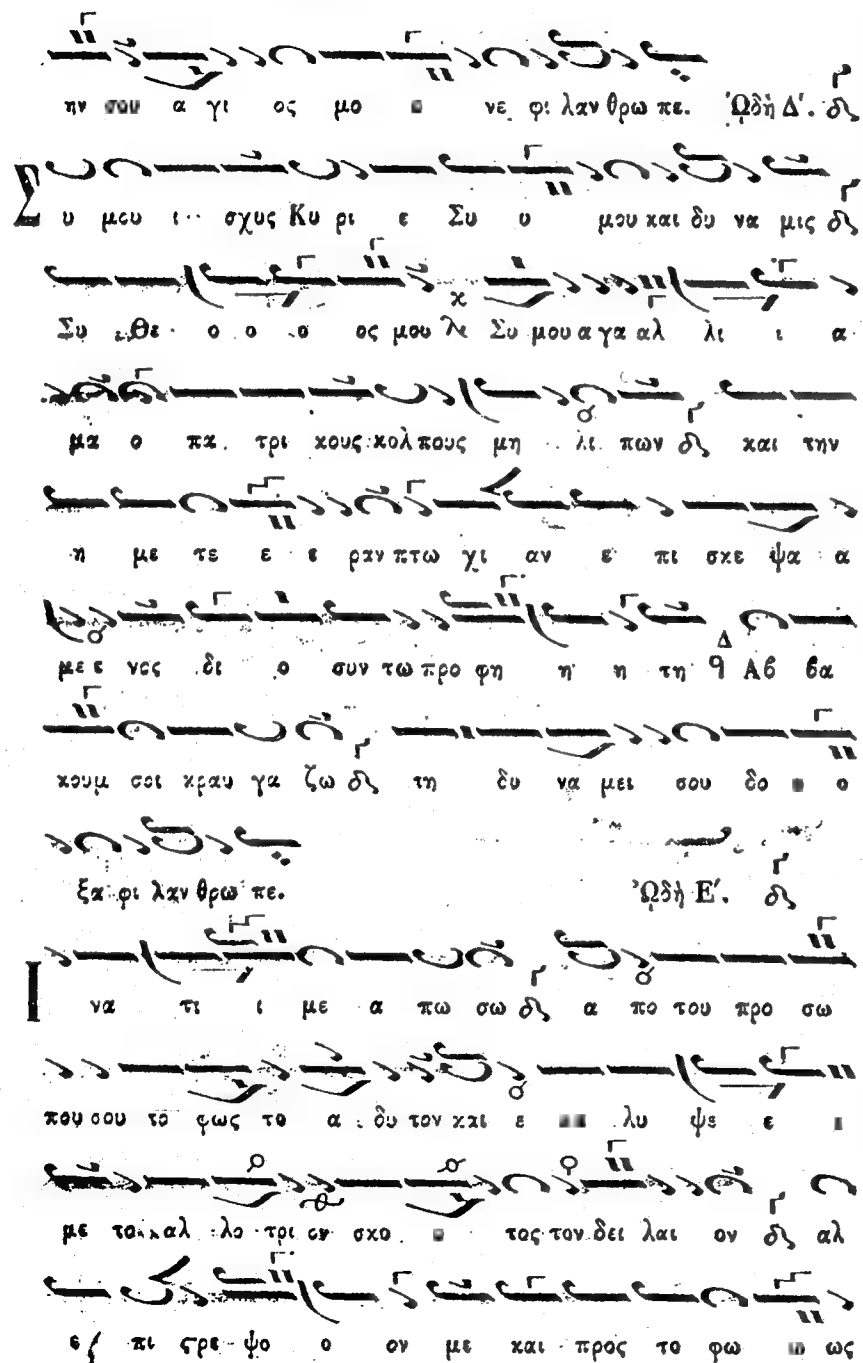 ην σου α γι ος μο ο νε φι λαν θρω πε. Ὠδὴ Δ΄.
Συ μου ι σχυς Κυ ρι ε Συ υ μου και δυ να μις
Συ Θε ο ο ο ος μου Συ μου α γα αλ λι ι α
μα ο πα τρι κους κολ πους μη λι πων και την
η με τε ε ε ραν πτω χι αν ε πι σκε ψα α α
με ε νος δι ο συν τω προ φη η η τη Αβ βα
κουμ σοι κραυ γα ζω τη δυ να μει σου δο ο ο
ξα φι λαν θρω πε. Ὠδὴ Ε΄.
Ι να τι ι με α πω σω α πο του προ σω
που σου το φως το α δυ τον και ε λυ ψε ε ι
με το αλ λο τρι ον σκο ο τος τον δει λαι ον αλ
ε πι στρε ψο ο ον με και προς το φω ως